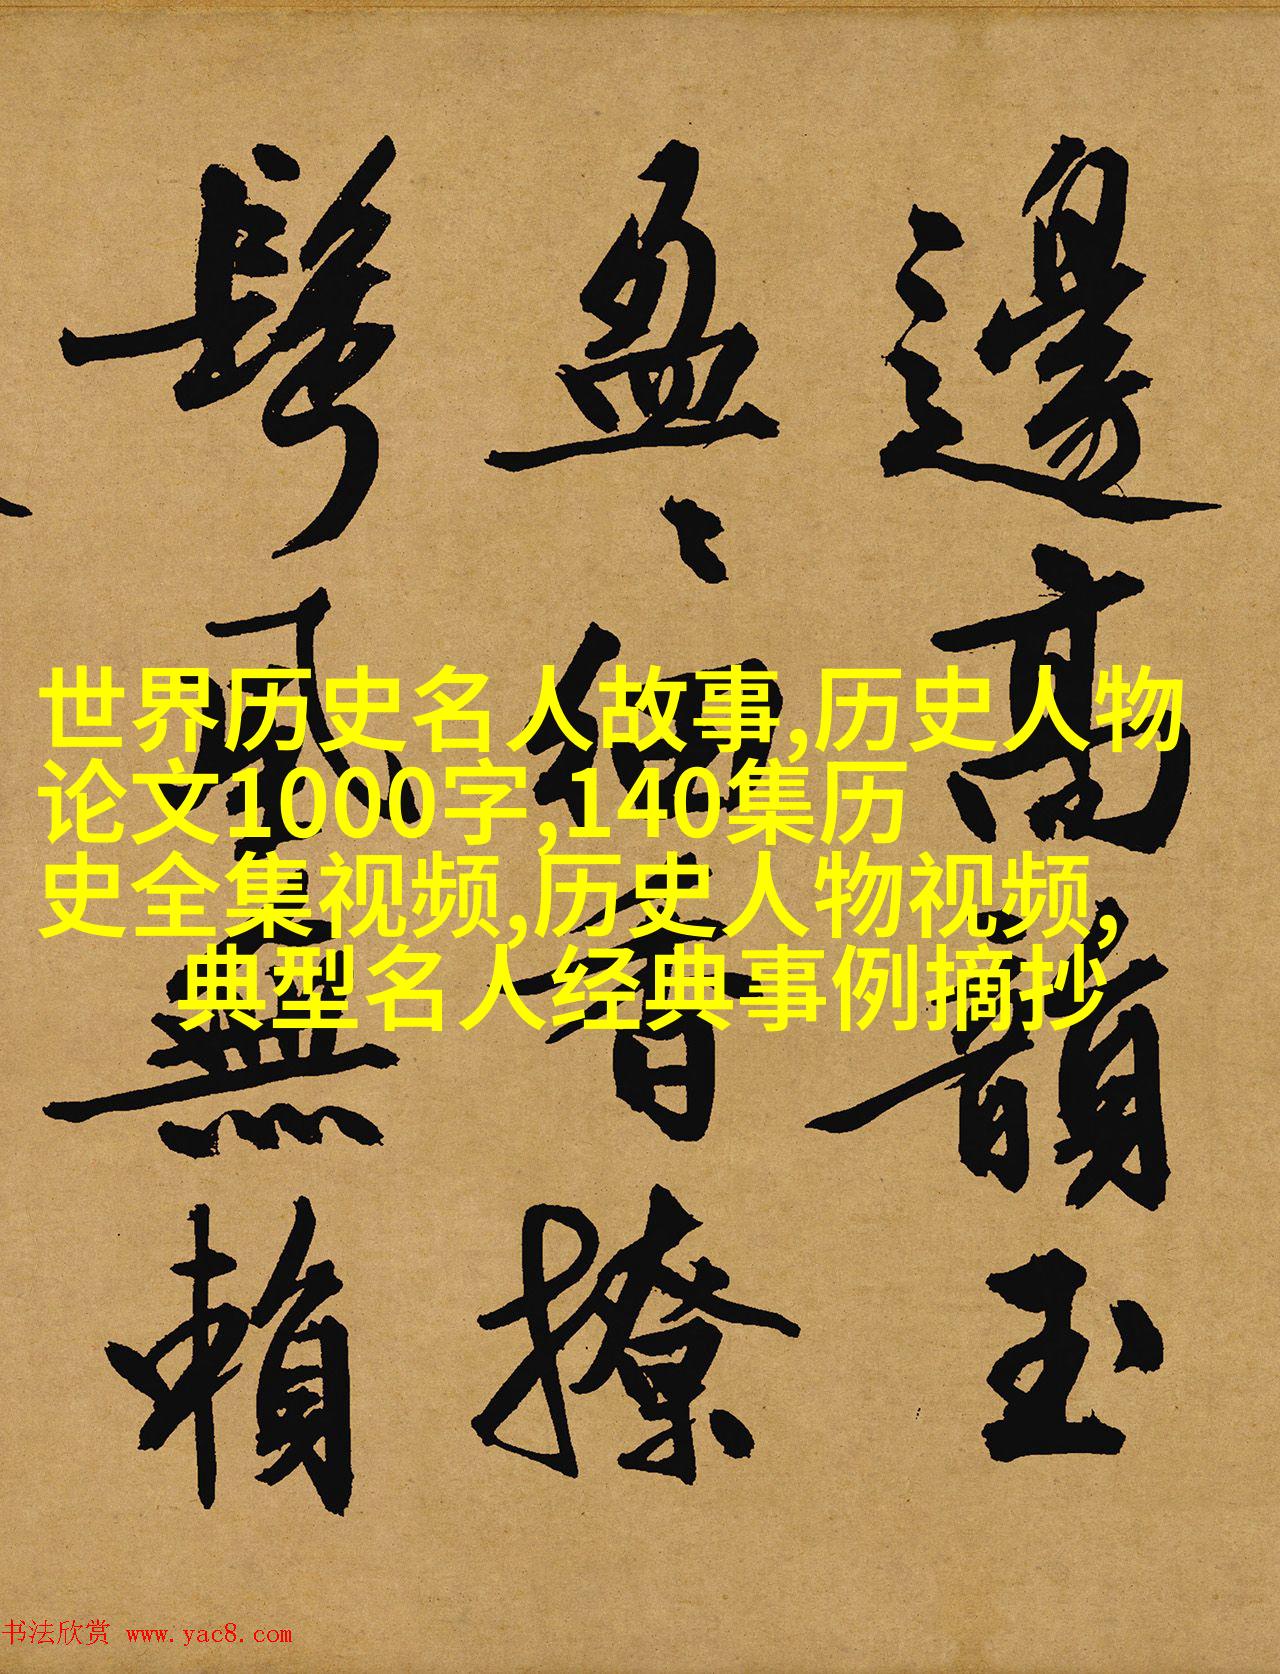 邊高韻玉
盈〻細香撩
鬢風無賴
世界历史名人故事,历史人物
论文1000字,140集历
史全集视频,历史人物视频,
典型名人经典事例摘抄
书法欣赏 www.yac8.com